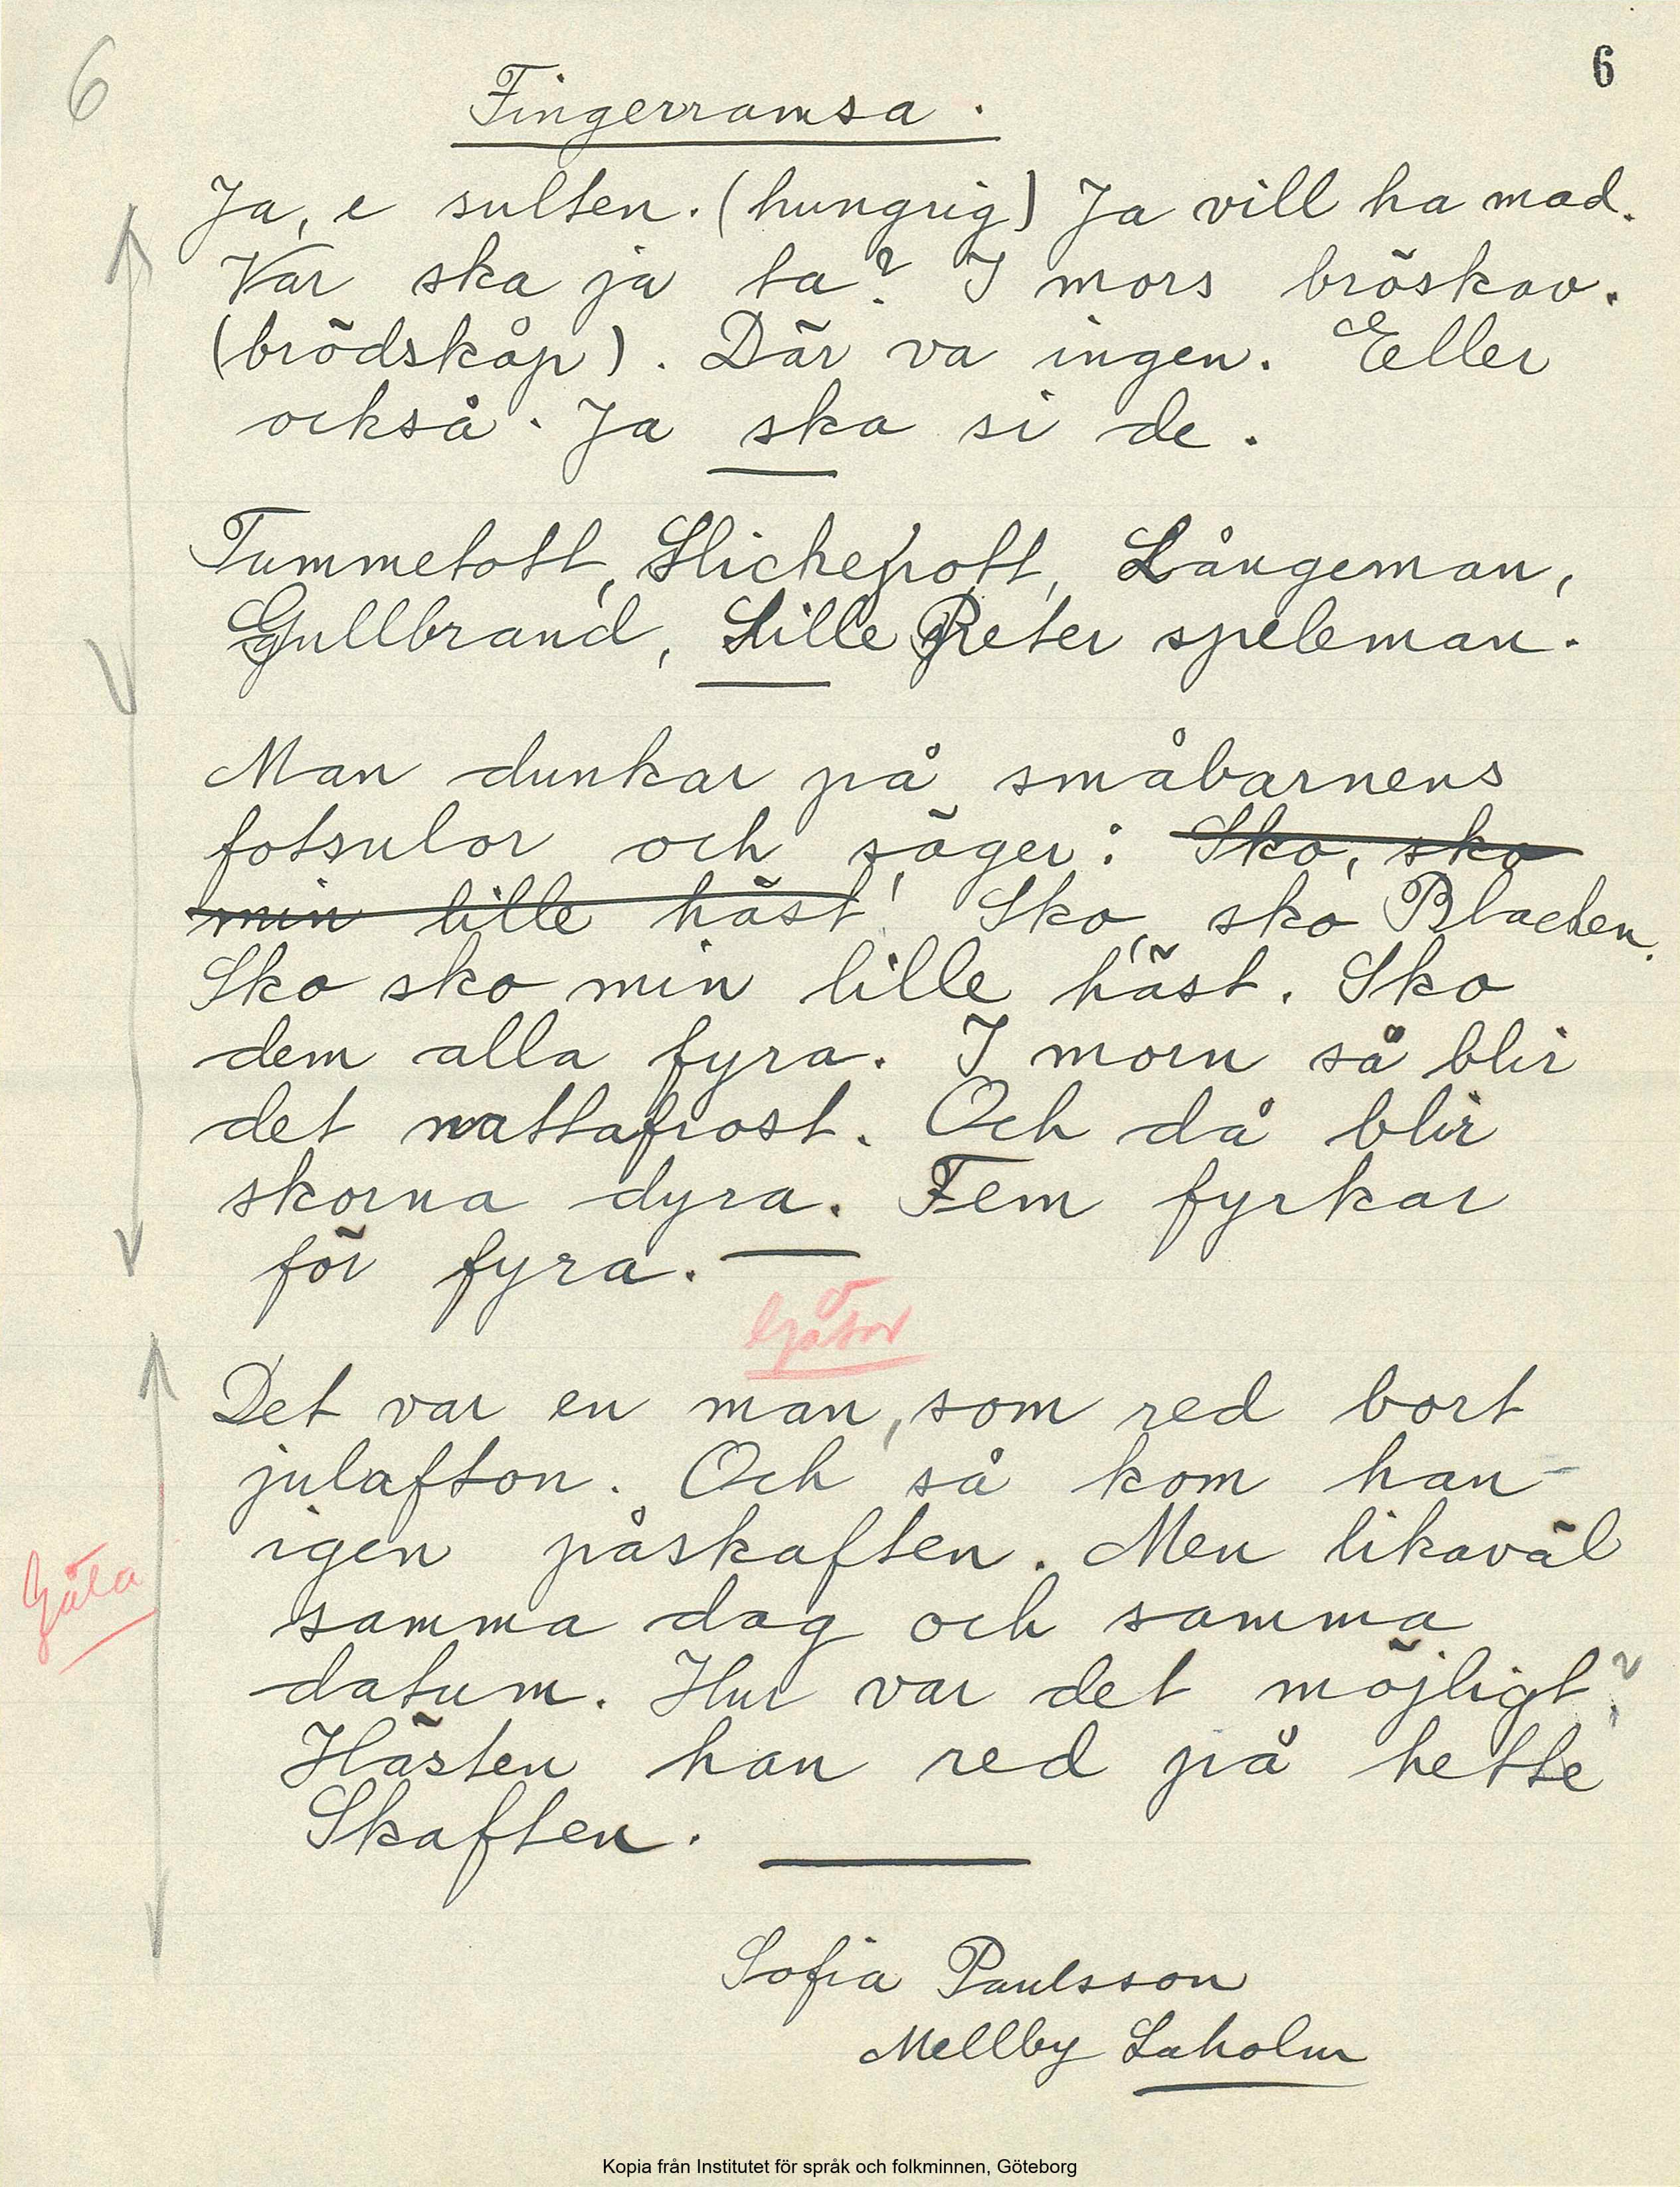 6
6
Fingerramsa.
Ja, e sulten. (hungrig) Ja vill ha mad.
Var ska ja ta? I mors bröskav.
(brödskåp). Där va ingen. Eller
också. Ja ska si de.
Tummetott, Slickepott, Långeman,
Gullbrand, Lille Peter speleman.
Man dunkar på småbarnens
fotsulor och säger: Sko, sko
min lille häst! Sko, sko Blacken.
Sko sko min lille häst. Sko
dem alla fyra. I morn så blir
det nattafrost. Och då blir
skorna dyra. Fem fyrkar
för fyra.
Gåtor
Det var en man, som red bort
julafton. Och så kom han
igen påskaften. Men likaväl
Gåta
samma dag och samma
datum. Hur var det möjligt?
Hästen han red på hette
Skaften.
Sofia Paulsson
Mellby Laholm
Kopia från Institutet för språk och folkminnen, Göteborg